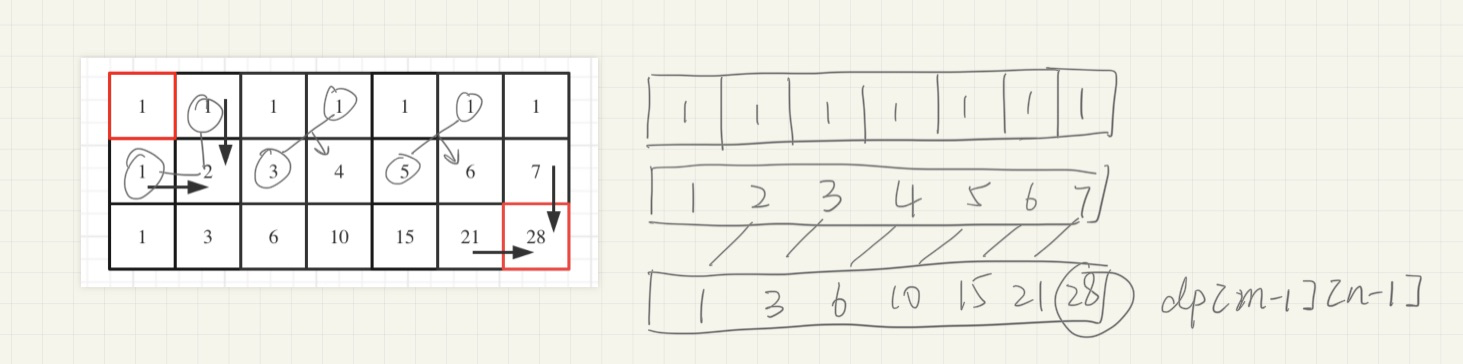 1 1 1 1 1 1 1
1 2 3 4 5 6 7
1 3 6 10 15 21 28
1 1 1 1 1 1 1
1 2 3 4 5 6 7
1 3 6 10 15 21 28 dp[m-1][n-1]